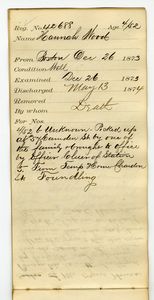 Reg. No. 42688 Age, 4/52
Name Hannah Wood
From Boston Dec 26 1873
Condition Well
Examined Dec 26 1873
Discharged May 13 1874
Removed
By whom Death
For
4/52 b Unknown. Picked up
at 57 Camden St by one of
the family & brought to office
by Officer Oliver of Station
5. From Temp Home Chardon
St. Foundling